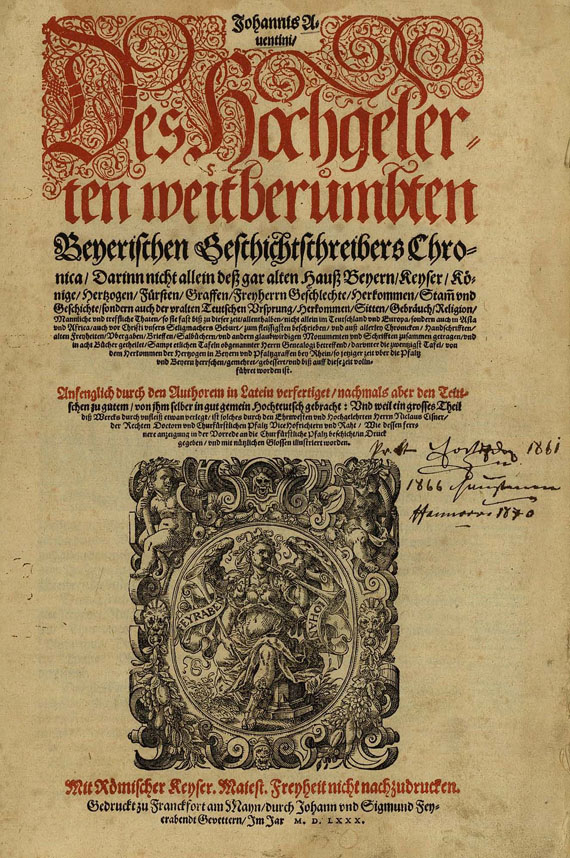 Johannis A-
uentini/
Des Hochgeler-
ten weitberümbten
Beyerischen Geschichtschreibers Chro-
nica/ Darinn nicht allein deß gar alten Hauß Beyern/ Keyser/ Kö-
nige/ Hertzogen/ Fürsten/ Graffen/ Freyherrn Geschlechte/ Herkommen/ Stam̃ vnd
Geschichte/ sondern auch der vralten Teutschen Vrsprung/ Herkommen/ Sitten/ Gebräuch/ Religion/
Mannliche vnd treffliche Thaten/ so sie fast biß zu dieser zeit allenthalben/ nicht allein im Teutschland vnd Europa/ sondern auch in Asia
vnd Africa/ auch vor Christi vnsers Seligmachers Geburt/ zum fleissigsten beschrieben/ vnd auß allerley Chronicken/ Handschrifften/
alten Freyheiten/ Vbergaben/ Brieffen/ Salbüchern/ vnd andern glaubwirdigen Monumenten vnd Schrifften zusammen getragen/ vnd
in acht Bücher getheilet/ Sampt etlichen Tafeln obgenannter Herrn Genealogi betreffend/ darunter die zwentzigst Tafel/ von
dem Herkommen der Hertzogen in Beyern vnd Pfaltzgraffen bey Rhein/ so jetziger zeit vber die Pfaltz
vnd Beyern herrschen/ gemehret/ gebessert/ vnd biß auff diese zeit volln-
führet worden ist.
Anfenglich durch den Authorem in Latein verfertiget/ nachmals aber den Teut-
schen zu gutem/ von jhm selber in gut gemein Hochteutsch gebracht: Vnd weil ein grosses Theil
diß Wercks durch vnfleiß etwan verlegt/ ist solches durch den Ehrnvesten vnd Hochgelehrten Herrn Niclaus Cisner/
der Rechten Doctorn vnd Churfürstlichen Pfaltz ViceHofrichtern vnd Raht/ Wie dessen fern-
nere anzeigung in der Vorrede an die Churfürstliche Pfaltz beschicht/ in Druck
gegeben/ vnd mit nützlichen Glossen illustriert worden.
1861
1866
Hannover 1870
EYRABEN
IOHAN
Mit Römischer Keyser. Maiest. Freyheit nicht nachzudrucken.
Gedruckt zu Franckfort am Mayn/ durch Johann vnd Sigmund Fey-
erabendt Gevettern/ Im Jar M. D. LXXX.